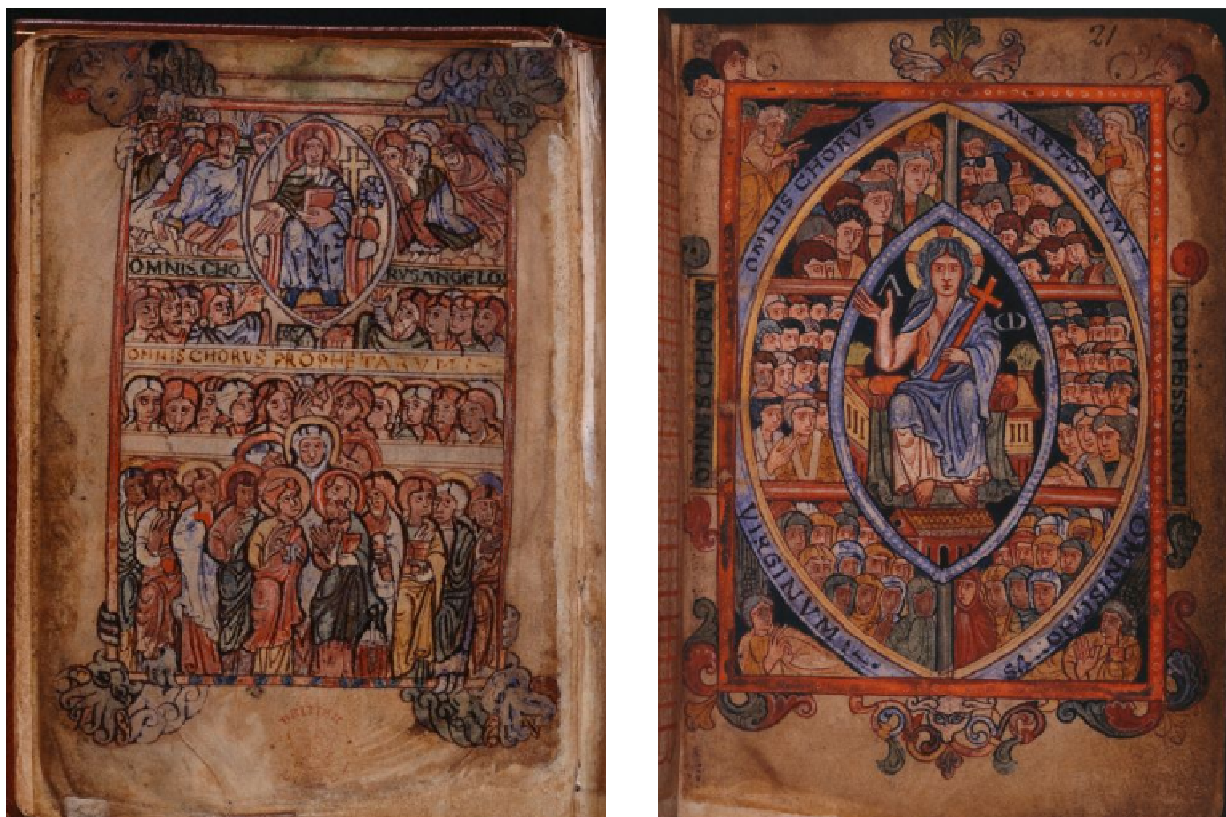 OMNIS CHO RVS ANGELO
OMNIS CHORVS PROPHETARVM
21
OMNIS CHORVS MARTYRVM
Λ ω
OMNIS CHORV
CONFESSORVM
VIRGINVM
OMNIS